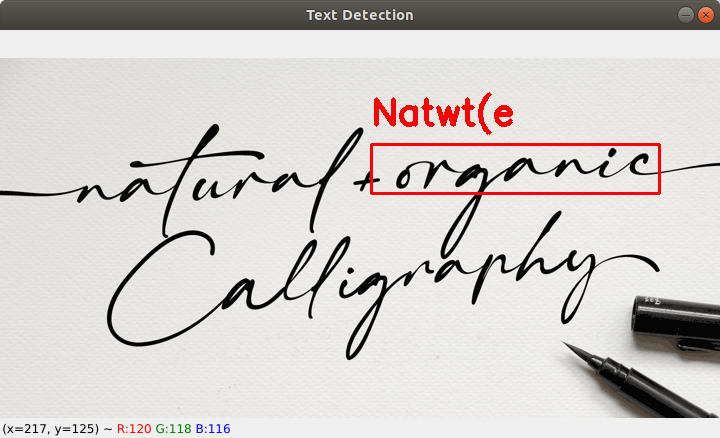 Text Detection
Natwt(e
natural + organic
Calligraphy
(x=217, y=125) ~ R:120 G:118 B:116